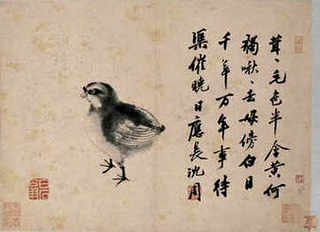 茸〻毛色半含黃何
獨啾〻去母傍白日
千年万年事待
渠催曉日應長沈周